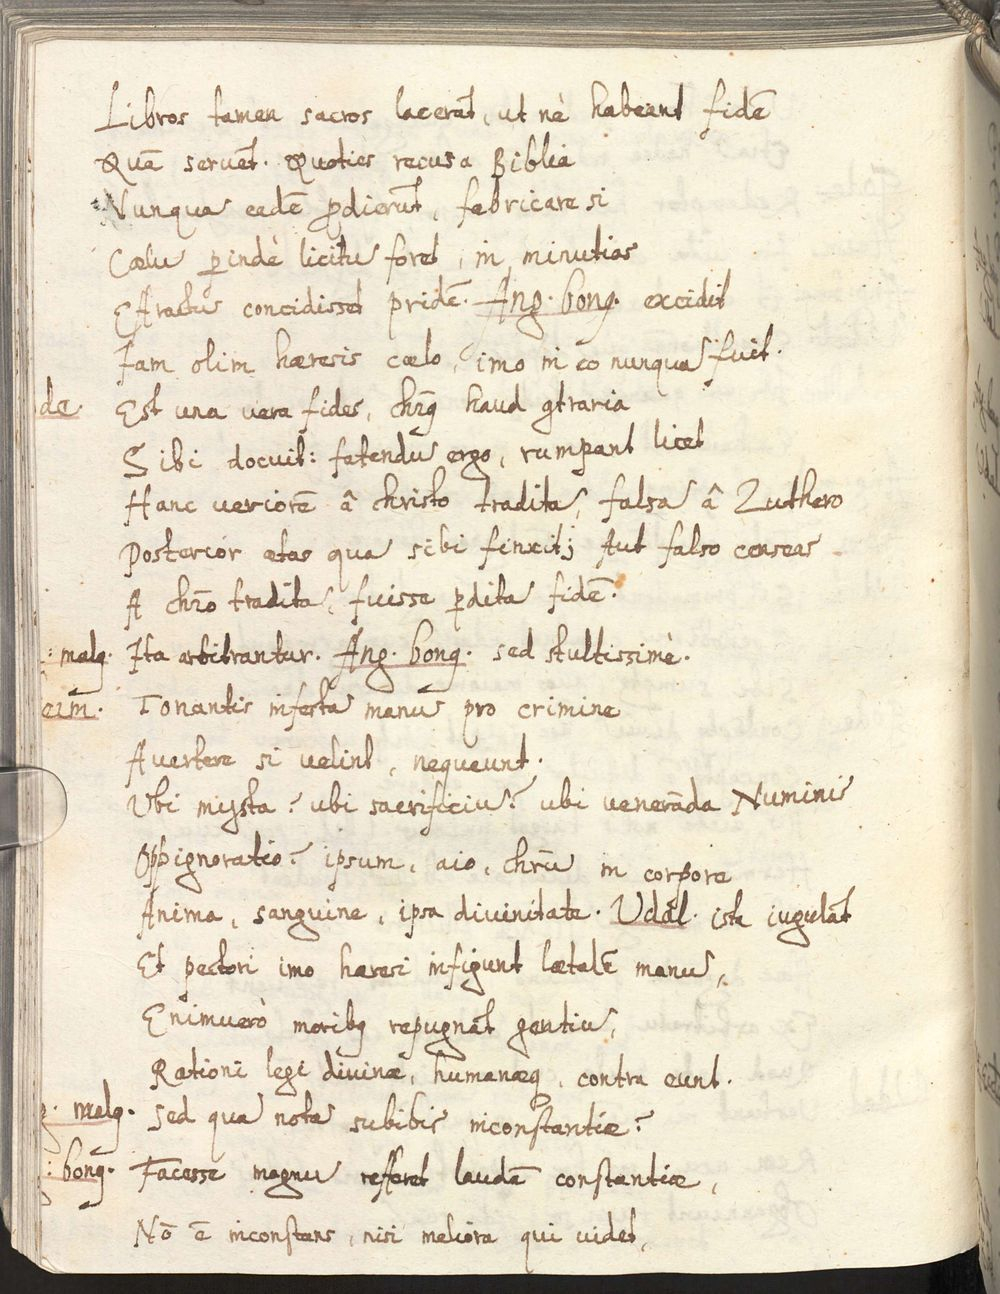 Libros tamen sacros lacerāt, ut nè habeant fidē
Quā seruēt. Quoties recusa Biblia
Nunqua eadē ꝓdierūt, fabricare si
Cœlu ꝑindè licitu foret, in minutias
Attractu concidisset pridē. Ang. bong. excidit
Iam olim hæresis cœlo, imo in eo nunqua fuit.
de. Est una uera fides, chrꝰ haud ꝯtraria
Sibi docuit: fatendū ergo, rumpant licet
Hanc ueriorē â Christo tradita, falsa â Luthero
Posterior ætas qua sibi finxit; Aut falso censeas
A chrō tradita, fuisse ꝑdita fidē.
: malg. Ita arbitrantur. Ang. bong. sed stultissimè.
eim. Tonantis infesta manū pro crimine
Auertere si uelint, nequeunt.
Vbi mysta? ubi sacrificiu? ubi venerāda Numinis
Oppignoratio? ipsum, aio, chrū in corpore
Anima, sanguine, ipsa diuinitate. Udal. iste iugulāt
Et pectori imo hæresi infigunt lætalē manu,
Enimuerò moribꝫ repugnāt gentiu,
Rationi legi diuinæ, humanæqꝫ, contra eunt.
malg. Sed qua nota subibis inconstantiæ?
: bong. Facesse magnu refferet laudā constantiæ,
Nō ē inconstans, nisi meliora qui uidet,